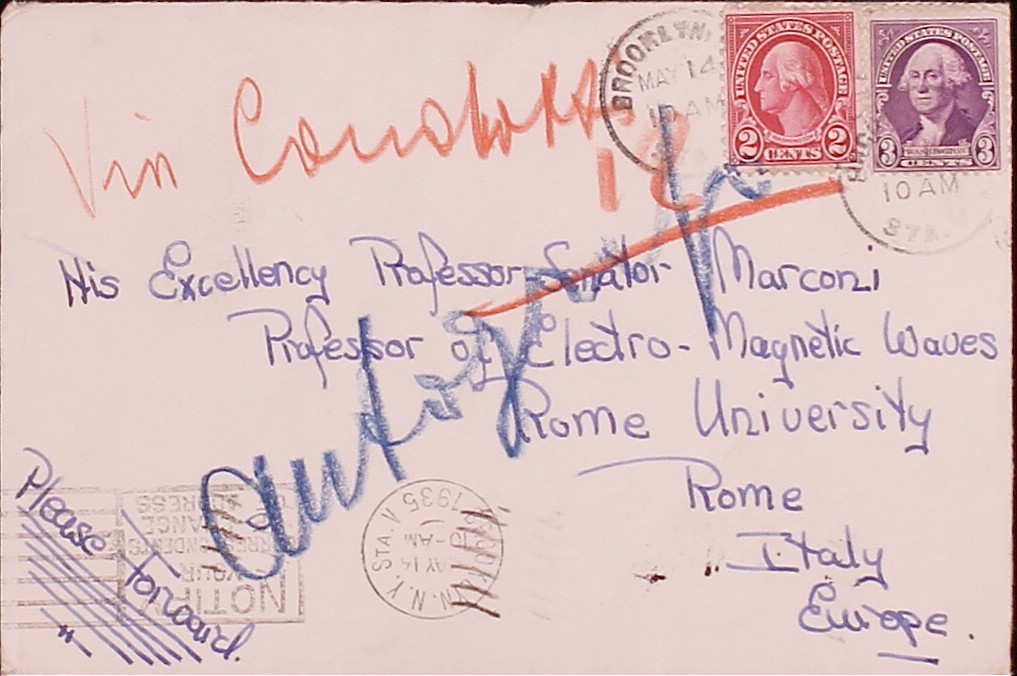 BROOKLYN,
MAY 14
10 AM
UNITED STATES POSTAGE
2 CENTS 2
UNITED STATES POSTAGE
WASHINGTON
3 CENTS 3
10 AM
STA.
Via Condotti
His Excellency Professor-Senator Marconi
Professor of Electro-Magnetic Waves
Rome University
Rome
Italy
Europe.
Please forward.
NOTIFY
YOUR
CORRESPONDENTS
CHANGE
ADDRESS
N.Y. STA. A
MAY 14
10-AM
1935